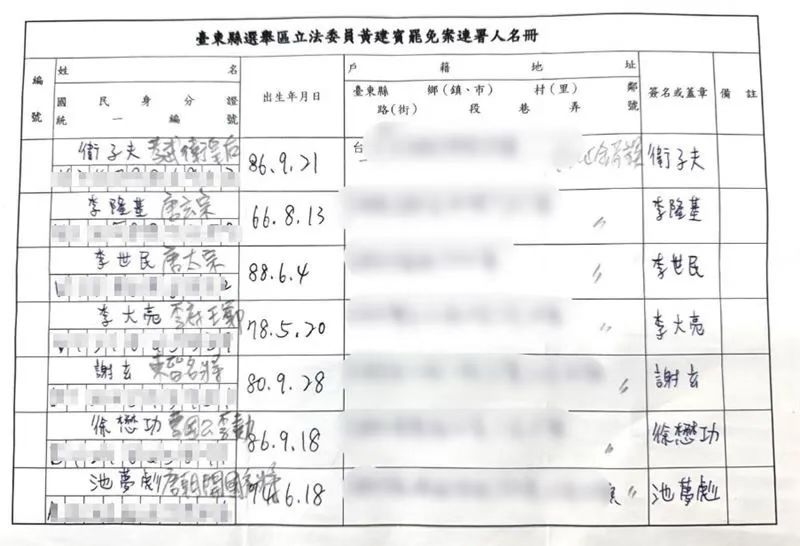 臺東縣選舉區立法委員黃建賓罷免案連署人名冊
編號 姓名 出生年月日 戶籍地址 簽名或蓋章 備註
國民身分證統一編號 臺東縣 鄉(鎮、市) 村(里) 鄰
路(街) 段 巷 弄 號
衛子夫 孝武衛皇后 86.9.21 台 衛子夫
李隆基 唐玄宗 66.8.13 〃 李隆基
李世民 唐太宗 88.6.4 〃 李世民
李大亮 78.5.20 〃 李大亮
謝玄 東晉名將 80.9.28 〃 謝玄
徐懋功 曹國公李勣 86.9.18 徐懋功
池夢彪 唐朝開國 6.18 〃 池夢彪